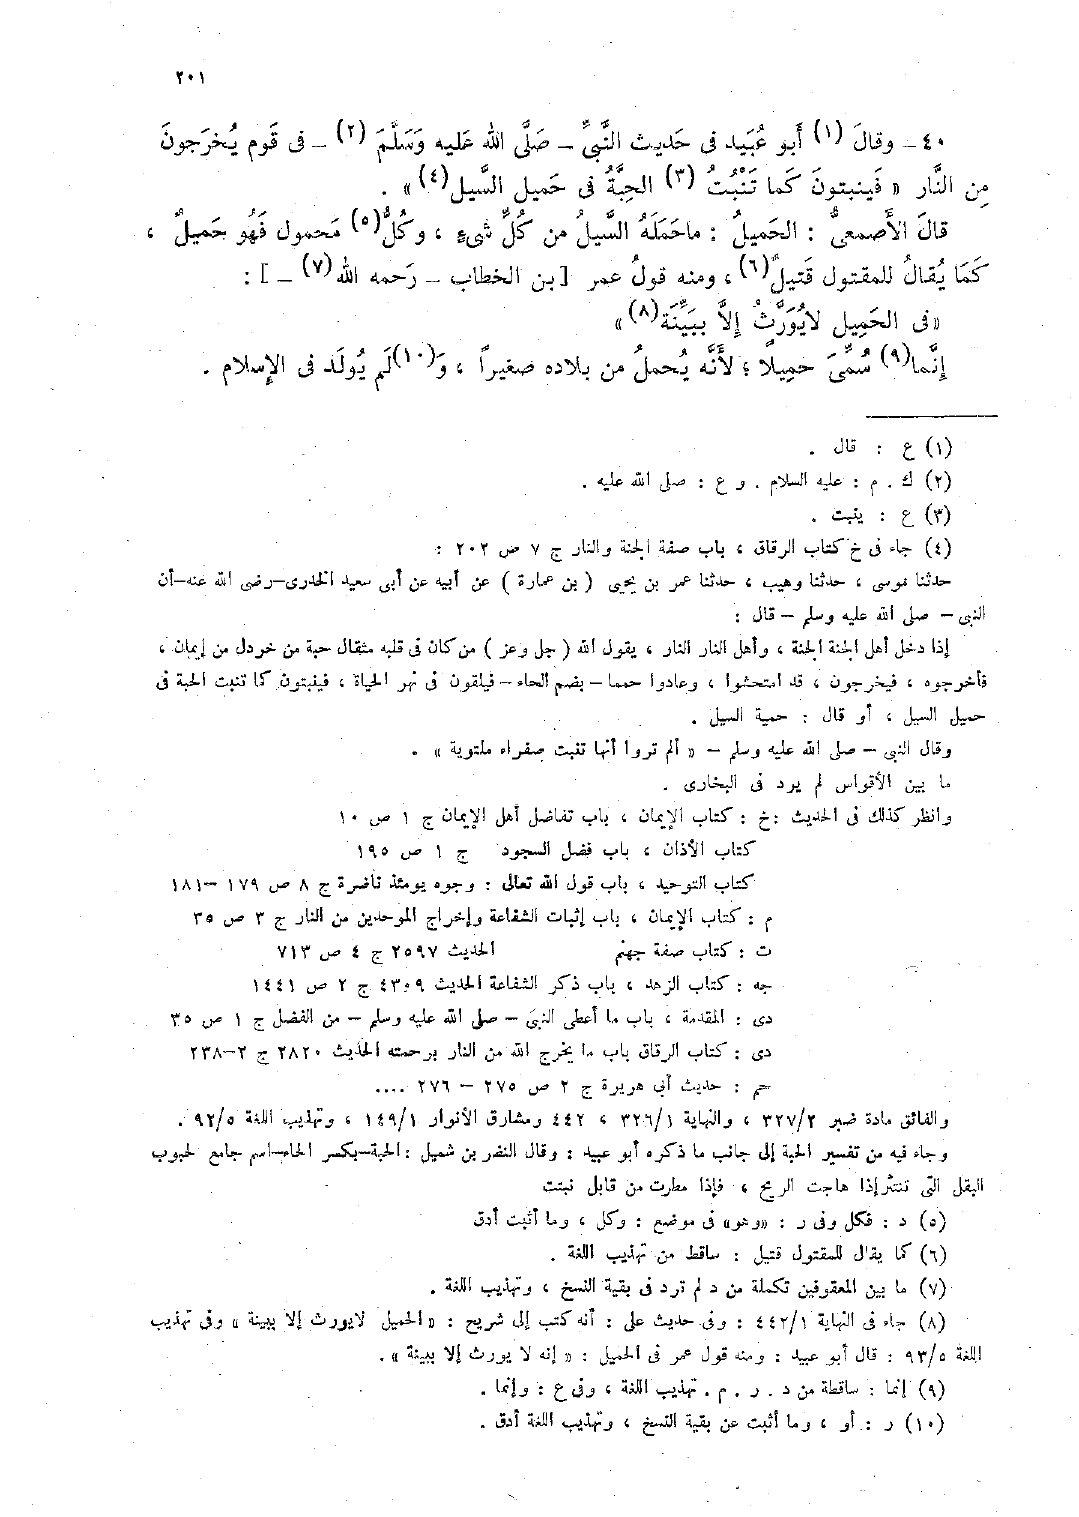 ٢٠١
٤٠ـ وقالَ (١) أَبو عُبَيد فى حَديث النَّبىِّ ـ صَلَّى اللهُ عَليه وَسَلَّمَ (٢) ـ فى قَوم يُخرَجونَ
مِن النَّار « فَينبتونَ كَما تَنْبُتُ (٣) الحِبَّةُ فى حَميل السَّيل(٤) » .
قالَ الأَصمعىُّ : الحَميلُ : ماحَمَلَهُ السَّيلُ من كُلِّ شىءٍ ، وكُلُّ(٥) مَحمول فَهُو حَميلٌ ،
كَمَا يُقالُ للمقتول قَتيلٌ(٦) ، ومنه قولُ عمر [بن الخطاب ـ رَحمه الله(٧) ـ ] :
«فى الحَميل لايُوَرَّثُ إِلاَّ ببَيِّنَة(٨)»
إِنَّما(٩) سُمِّىَ حَمِيلاً ؛ لأَنَّه يُحملُ من بلاده صغيراً ، وَ(١٠)لَم يُولَد فى الإِسلام .
(١) ع : قال .
(٢) ك . م : عليه السلام . و ع : صلى الله عليه .
(٣) ع : ينبت .
(٤) جاء فى خ كتاب الرقاق ، باب صفة الجنة والنار ج ٧ ص ٢٠٢ :
حدثنا موسى ، حدثنا وهيب ، حدثنا عمر بن يحيى ( بن عمارة ) عن أبيه عن أبى سعيد الخدرى–رضى الله عنه–أن
النبى – صلى الله عليه وسلم – قال :
إذا دخل أهل الجنة الجنة ، وأهل النار النار ، يقول الله ( جل وعز ) من كان فى قلبه مثقال حبة من خردل من إيمان ،
فأخرجوه ، فيخرجون ، قد امتحشوا ، وعادوا حمما–بضم الحاء–فيلقون فى نهر الحياة ، فينبتون كما تنبت الحبة فى
حميل السيل ، أو قال : حمية السيل .
وقال النبى – صلى الله عليه وسلم – « ألم تروا أنها تنبت صفراء ملتوية » .
ما بين الأقواس لم يرد فى البخارى .
وانظر كذلك فى الحديث :خ : كتاب الإيمان ، باب تفاضل أهل الإيمان ج ١ ص ١٠
كتاب الأذان ، باب فضل السجود ج ١ ص ١٩٥
كتاب التوحيد ، باب قول الله تعالى : وجوه يومئذ ناضرة ج ٨ ص ١٧٩ –١٨١
م : كتاب الإيمان ، باب إثبات الشفاعة وإخراج الموحدين من النار ج ٣ ص ٣٥
ت : كتاب صفة جهنم الحديث ٢٥٩٧ ج ٤ ص ٧١٣
جه : كتاب الزهد ، باب ذكر الشفاعة الحديث ٤٣٠٩ ج ٢ ص ١٤٤١
دى : المقدمة ، باب ما أعطى النبى – صلى الله عليه وسلم – من الفضل ج ١ ص ٣٥
دى : كتاب الرقاق باب ما يخرج الله من النار برحمته الحديث ٢٨٢٠ ج ٢–٢٣٨
حم : حديث أبى هريرة ج ٢ ص ٢٧٥ – ٢٧٦ ....
والفائق مادة ضبر ٣٢٧/٢ ، والنهاية ٣٢٦/١ ، ٤٤٢ ومشارق الأنوار ١٤٩/١ ، وتهذيب اللغة ٩٢/٥ .
وجاء فيه من تفسير الحبة إلى جانب ما ذكره أبو عبيد : وقال النضر بن شميل :الحبة–بكسر الحاء–اسم جامع لحبوب
البقل التى تنتثر إذا هاجت الريح ، فإذا مطرت من قابل نبتت
(٥) د : فكل وفى ر : «وهو» فى موضع : وكل ، وما أثبت أدق
(٦) كما يقال للمقتول قتيل : ساقط من تهذيب اللغة .
(٧) ما بين المعقوفين تكملة من د لم ترد فى بقية النسخ ، وتهذيب اللغة .
(٨) جاء فى النهاية ٤٤٢/١ : وفى حديث على : أنه كتب إلى شريح : « الحميل لايورث إلا ببينة » وفى تهذيب
اللغة ٩٣/٥ : قال أبو عبيد : ومنه قول عمر فى الحميل : « إنه لا يورث إلا ببينة » .
(٩) إنما : ساقطة من د . ر . م . تهذيب اللغة ، وفى ع : وإنما .
(١٠) ر : أو ، وما أثبت عن بقية النسخ ، وتهذيب اللغة أدق .